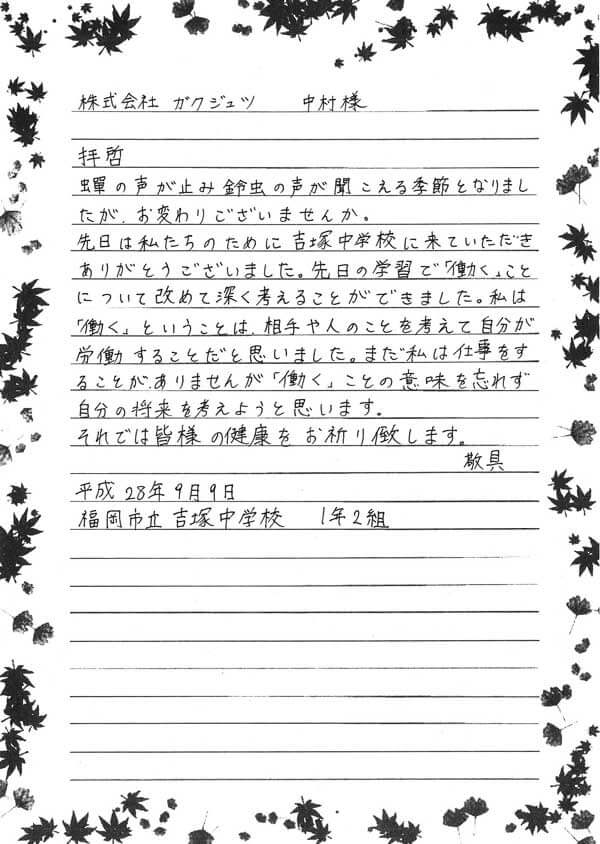 株式会社 ガクジュツ 中村様
拝哲
蝉の声が止み鈴虫の声が聞こえる季節となりまし
たが、お変わりございませんか。
先日は私たちのために吉塚中学校に来ていただき
ありがとうございました。先日の学習で「働く」こと
について改めて深く考えることができました。私は
「働く」ということは、相手や人のことを考えて自分が
労働することだと思いました。まだ私は仕事をす
ることが、ありませんが「働く」ことの意味を忘れず
自分の将来を考えようと思います。
それでは皆様の健康をお祈り致します。
敬具
平成28年9月9日
福岡市立吉塚中学校 1年2組